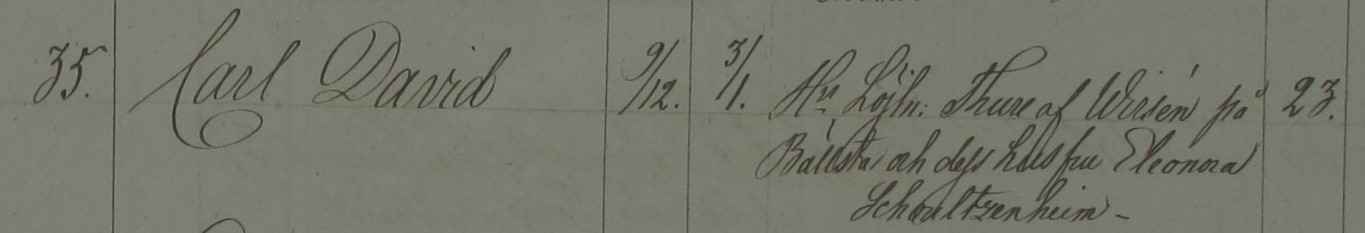 35. Carl David 9/12. 3/1. Hrr Löjtn: Thure af Wirsén på 23.
Bållsta och dess hustru Eleonora
Schoultzenheim –